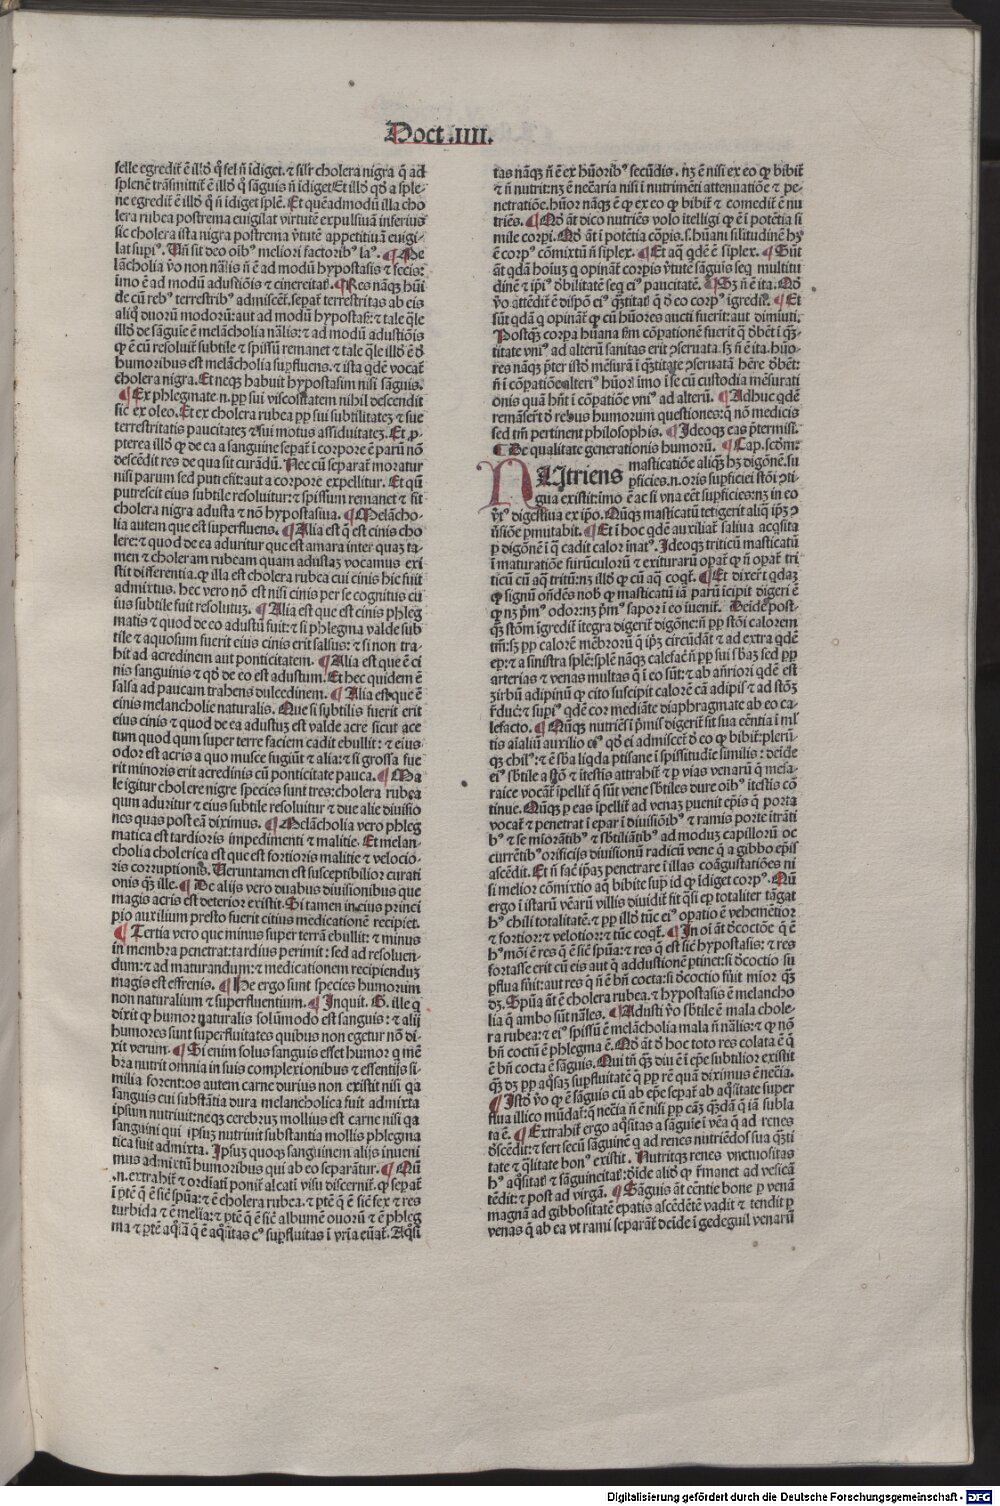 Doct .IIII.
felle egredit̃ ē illd̓ q̓ fel ñ īdiget. ⁊ silr̃ cholera nigra q̃ ad
splenē trãsmittit̃ ē illd̓ q̃ sãguis ñ īdiget Et illd̓ qd̓ a sple-
ne egredit̃ ē illd̓ q̃ ñ īdiget splē. Et quēadmodũ illa cho
lera rubea postrema euigilat virtutē expulsiuã inferius
sic cholera ista nigra postrema v̓tutē appetitiuã euigi-
lat supi⁹. Uñ sit deo oib⁹ meliori factorib⁹ la⁹. ¶ Me
lãcholia v̓o non nãlis ñ ē ad modũ hypostasis ⁊ fecis:
imo ē ad modũ adustiõis ⁊ cinereitat̃. ¶ Res nãq̃ hũi
de cũ reb⁹ terrestrib⁹ admiscet̃. separat̃ terrestritas ab eis
aliq̃ duorũ modorũ: aut ad modũ hypostas̃: ⁊ tale q̃le
illd̓ de sãguie ē melãcholia nãlis: ⁊ ad modũ adustiõis
ꝙ ē cũ resoluit̃ subtile ⁊ spissũ remanet ⁊ tale q̃le illd̓ ē d̓
humoribus est melãcholia supfluens. ⁊ ista qdē vocat̃
cholera nigra. Et neq̃ habuit hypostasim nisi sãguis.
¶ Ex phlegmate .n. pp̃ sui viscositatem nihil descendit
sic ex oleo. Et ex cholera rubea pp̃ sui subtilitateʒ ⁊ sue
terrestritatis paucitateʒ ⁊ sui motus assiduitateʒ. Et p̃-
pterea illd̓ q̃ de ea a sanguine separat̃ ī corpore ē parũ nõ
descēdit res de qua sit curãdũ. Nec cũ separat̃ moratur
nisi parum sed putrefit: aut a corpore expellitur. Et qñ
putrescit eius subtile resoluitur: ⁊ spissum remanet ⁊ fit
cholera nigra adusta ⁊ nõ hypostasiua. ¶ Melãcho-
lia autem que est superfluens. ¶ Alia est q̃ est cinis cho
lere: ⁊ quod de ea aduritur que est amara inter quaʒ ta-
men ⁊ choleram rubeam quam adustaʒ vocamus exi
stit differentia. ꝙ illa est cholera rubea cui cinis hic fuit
admixtus. hec vero nõ est nisi cinis per se cognitus cu
ius subtile fuit resolutuʒ. ¶ Alia est que est cinis phleg
matis ⁊ quod de eo adustũ fuit: ⁊ si phlegma valde sub
tile ⁊ aquosum fuerit eius cinis erit salsus: ⁊ si non tra-
hit ad acredinem aut ponticitatem. ¶ Alia est que ē ci
nis sanguinis ⁊ qd̓ de eo est adustum. Et hec quidem ē
salsa ad paucam trahens dulcedinem. ¶ Alia est que ē
cinis melancholie naturalis. Que si subtilis fuerit erit
eius cinis ⁊ quod de ea adustuʒ est valde acre sicut ace
tum quod qum super terre faciem cadit ebullit: ⁊ eius
odor est acris a quo musce fugiũt ⁊ alia: ⁊ si grossa fue
rit minoris erit acredinis cũ ponticitate pauca. ¶ Ma
le igitur cholere nigre species sunt tres: cholera rubea
qum aduritur ⁊ eius subtile resoluitur ⁊ due alie diuisio
nes quas post eã diximus. ¶ Melãcholia vero phleg
matica est tardioris impedimenti ⁊ malitie. Et melan-
cholia cholerica est que est fortioris malitie ⁊ velocio-
ris corruptionis. Veruntamen est susceptibilior curati
onis q̃ʒ ille. ¶ De alijs vero duabus diuisionibus que
magis acris est deterior existit. Si tamen in eius princi
pio auxilium presto fuerit citius medicationē recipiet.
¶ Tertia vero que minus super terrã ebullit: ⁊ minus
in membra penetrat: tardius perimit: sed ad resoluen-
dum: ⁊ ad maturandum: ⁊ medicationem recipienduʒ
magis est effrenis. ¶ He ergo sunt species humorum
non naturalium ⁊ superfluentium. ¶ Inquit. G. ille q
dixit ꝙ humor naturalis solũmodo est sanguis: ⁊ alij
humores sunt superfluitates quibus non egetur nõ di-
xit verum. ¶ Si enim solus sanguis esset humor q mē
bra nutrit omnia in suis complexionibus ⁊ essentijs si-
milia forent: os autem carne durius non existit nisi qa
sanguis cui substãtia dura melancholica fuit admixta
ipsum nutriuit: neq̃ cerebruʒ mollius est carne nisi qa
sanguini qui ipsuʒ nutriuit substantia mollis phlegma
tica fuit admixta. Ipsuʒ quoq̃ sanguinem alijs inueni
mus admixtũ humoribus qui ab eo separãtur. ¶ Nũ
.n. extrahit̃ ⁊ ordiati ponit̃ alcati visu discernit̃. ꝙ separat̃
ī ptē q̃ ē sic̃ spũa: ⁊ ē cholera rubea. ⁊ ptē q̃ ē sic̃ fex ⁊ res
turbida ⁊ ē melia: ⁊ ptē q̃ ē sic̃ albumē ouorũ ⁊ ē phleg
ma ⁊ ptē aq̃iã q̃ ē aq̃sitas c⁹ supfluitas ī vrīa eũat̃. Aq̃si
tas nãq̃ ñ ē ex hũorib⁹ secũdis. nʒ ē nisi ex eo ꝙ bibit̃
⁊ ñ nutrit: nʒ ē necc̃aria nisi ī nutrimēti attenuatiõe ⁊ pe-
netratiõe. hũor nãq̃ ē ꝙ ex eo ꝙ bibit̃ ⁊ comedit̃ ē nu
triēs. ¶ Qd̓ ãt dico nutriēs volo itelligi ꝙ ē ī potētia si
mile corpi. Qd̓ ãt ī potētia cõpis .s. hũani silitudinē hʒ
ē corp⁹ cõmixtũ ñ siplex. ¶ Et aq̃ qdē ē siplex. ¶ Sũt
ãt qdã hoiuʒ q opinãt̃ corpis v̓tutē sãguis seq̃ multitu
dinē ⁊ ip̃i⁹ d̓bilitatē seq̃ ei⁹ paucitatē. ¶ Sʒ ñ ē ita. Qd̓
v̓o atēdit̃ ē dispõ ei⁹ q̃titat̃ q̃ d̓ eo corp⁹ igredit̃. ¶ Et
sũt qdã q opinãt̃ ꝙ cũ hũores aucti fuerit: aut diminuti.
Postq̃ʒ corpa hũana sm̃ cõpationē fuerit q̃ d̓bēt ī q̃ʒ-
titate vni⁹ ad alterũ sanitas erit ɔseruata. sʒ ñ ē ita. hũo-
res nãq̃ p̃ter istd̓ mēsurã ī q̃titate ɔseruatã h̃ere d̓bēt:
ñ ī cõpatiõe alteri⁹ hũoʒ imo ī se cũ custodia mēsurati
onis quã hñt ī cõpatiõe vni⁹ ad alterũ. ¶ Adhuc qdē
remãser̃t d̓ rebus humorum questiones: q̃ nõ medicis
sed tm̃ pertinent philosophis. ¶ Ideoq̃ eas p̃termisi.
¶ De qualitate generationis humorũ. ¶ Cap. scd̓m:
NUtriens masticatiõe aliq̃ hʒ digõnē. su
pficies .n. oris supficiei stõi ɔti-
gua existit: imo ē ac si vna eēt supficies: nʒ in eo
v̓t⁹ digestiua ex ip̃o. Qũq̃ masticatũ tetigerit aliq̃ ip̃ʒ ɔ
ũsiõe p̃mutabit. ¶ Et ī hoc qdē auxiliat̃ saliua acq̃sita
p digõnē ī q̃ cadit calor īnat⁹. Ideoq̃ triticũ masticatũ
ī maturatiõe furũculorũ ⁊ exiturarũ opat̃ q̃ ñ opat̃ tri
ticũ cũ aq̃ tritũ: nʒ illd̓ ꝙ cũ aq̃ coq̃t̃. ¶ Et dixer̃t qdaʒ
ꝙ signũ ondēs nob̓ ꝙ masticatũ iã parũ īcipit digeri ē
ꝙ nʒ pm̃⁹ odor: nʒ pm̃⁹ sapor ī eo iuenit̃. Deide post-
q̃ʒ stõm īgredit̃ ītegra digerit̃ digõne: ñ pp̃ stõi calorem
tm̃: sʒ pp̃ calorē mēbrorũ q̃ ip̃ʒ circũdãt ⁊ ad extra qdē
ep̃: ⁊ a sinistra splē: splē nãq̃ calefac̃ ñ pp̃ sui sb̓aʒ sed pp̃
arterias ⁊ venas multas q̃ ī eo sũt: ⁊ ab añriori qdē est
zirbũ adipinũ ꝙ cito suscipit calorē cã adipis̃ ⁊ ad stõʒ
r̃duc̃: ⁊ supi⁹ qdē cor mediãte diaphragmate ab eo ca-
lefacto. ¶ Nũq̃ nutriēs ī p̃mis digerit̃ fit sua eēntia ī ml̃
tis aialiũ auxilio ei⁹ qd̓ ei admiscet̃ d̓ eo ꝙ bibit̃: plerũ-
q̃ chil⁹: ⁊ ē sb̓a liqda ptisane ī spissitudie similis: deide
ei⁹ sb̓tile a stõ ⁊ itestis attrahit̃ ⁊ p vias venarũ q̃ mesa-
raice vocãt̃ ipellit̃ q̃ sũt vene sb̓tiles dure oib⁹ itestis cõ
tinue. Qũq̃ p eas ipellit̃ ad venaʒ puenit ep̃is q̃ porta
vocat̃ ⁊ penetrat ī epar ī diuisiõib⁹ ⁊ ramis porte itrãti
b⁹ ⁊ se mioratib⁹ ⁊ sb̓tiliãtib⁹ ad moduʒ capillorũ oc
currētib⁹ orificijs diuisionũ radicũ vene q̃ a gibbo ep̃is
ascēdit. Et ñ fac̃ ip̃aʒ penetrare ī illas coãgustatiões ni
si melior cõmixtio aq̃ bibite sup̃ id ꝙ īdiget corp⁹. Nũ
ergo ī istarũ vēarũ villis diuidit̃ fit q̃si ep̃ totaliter tãgat
h⁹ chili totalitatē. ⁊ pp̃ illd̓ tũc ei⁹ opatio ē vehemētior
⁊ fortior: ⁊ velotior: ⁊ tũc coq̃t̃. ¶ In oi ãt d̓coctõe q̃ ē
h⁹mõi ē res q̃ ē sic̃ spũa: ⁊ res q̃ est sic̃ hypostasis: ⁊ res
fortasse erit cũ eis aut q̃ addustionē ptinet: si d̓coctio su
pflua fũit: aut res q̃ ñ ē bñ cocta: si d̓coctio fũit mīor q̃ʒ
dʒ. Spũa ãt ē cholera rubea. ⁊ hypostasis ē melancho
lia q̃ ambo sũt nãles. ¶ Adusti v̓o sb̓tile ē mala chole-
ra rubea: ⁊ ei⁹ spissũ ē melãcholia mala ñ nãlis: ⁊ ꝙ nõ
bñ coctũ ē phlegma ē. Qd̓ ãt d̓ hoc toto res colata ē q̃
ē bñ cocta ē sãguis. Qui tñ q̃ʒ diu ē ī ep̃e subtilior existit
q̃ʒ dʒ pp̃ aq̃saʒ supfluitatē q̃ pp̃ rē quã diximus ē necia.
¶ Istd̓ v̓o ꝙ ē sãguis cũ ab ep̃e separat̃ ab aq̃sitate super
flua illico mũdat̃: q̃ necia ñ ē nisi pp̃ cãʒ q̃dã q̃ iã subla
ta ē. ¶ Extrahit̃ ergo aq̃sitas a sãguie ī vēa q̃ ad renes
d̓scēdit: ⁊ fert secũ sãguinē q ad renes nutriēdos sua q̃ti
tate ⁊ q̃litate bon⁹ existit. Nutritq̃ renes vnctuositas
h⁹ aq̃sitat̃ ⁊ sãguinitat̃: d̓ide aliud̓ ꝙ r̃manet ad vesicã
tēdit: ⁊ post ad virgã. ¶ Sãguis ãt eēntie bone p venã
magnã ad gibbositatē epatis ascēdētē vadit ⁊ tendit p
venas q̃ ab ea vt rami separãt̃ deide ī gedeguil venarũ
Digitalisierung gefördert durch die Deutsche Forschungsgemeinschaft - DFG